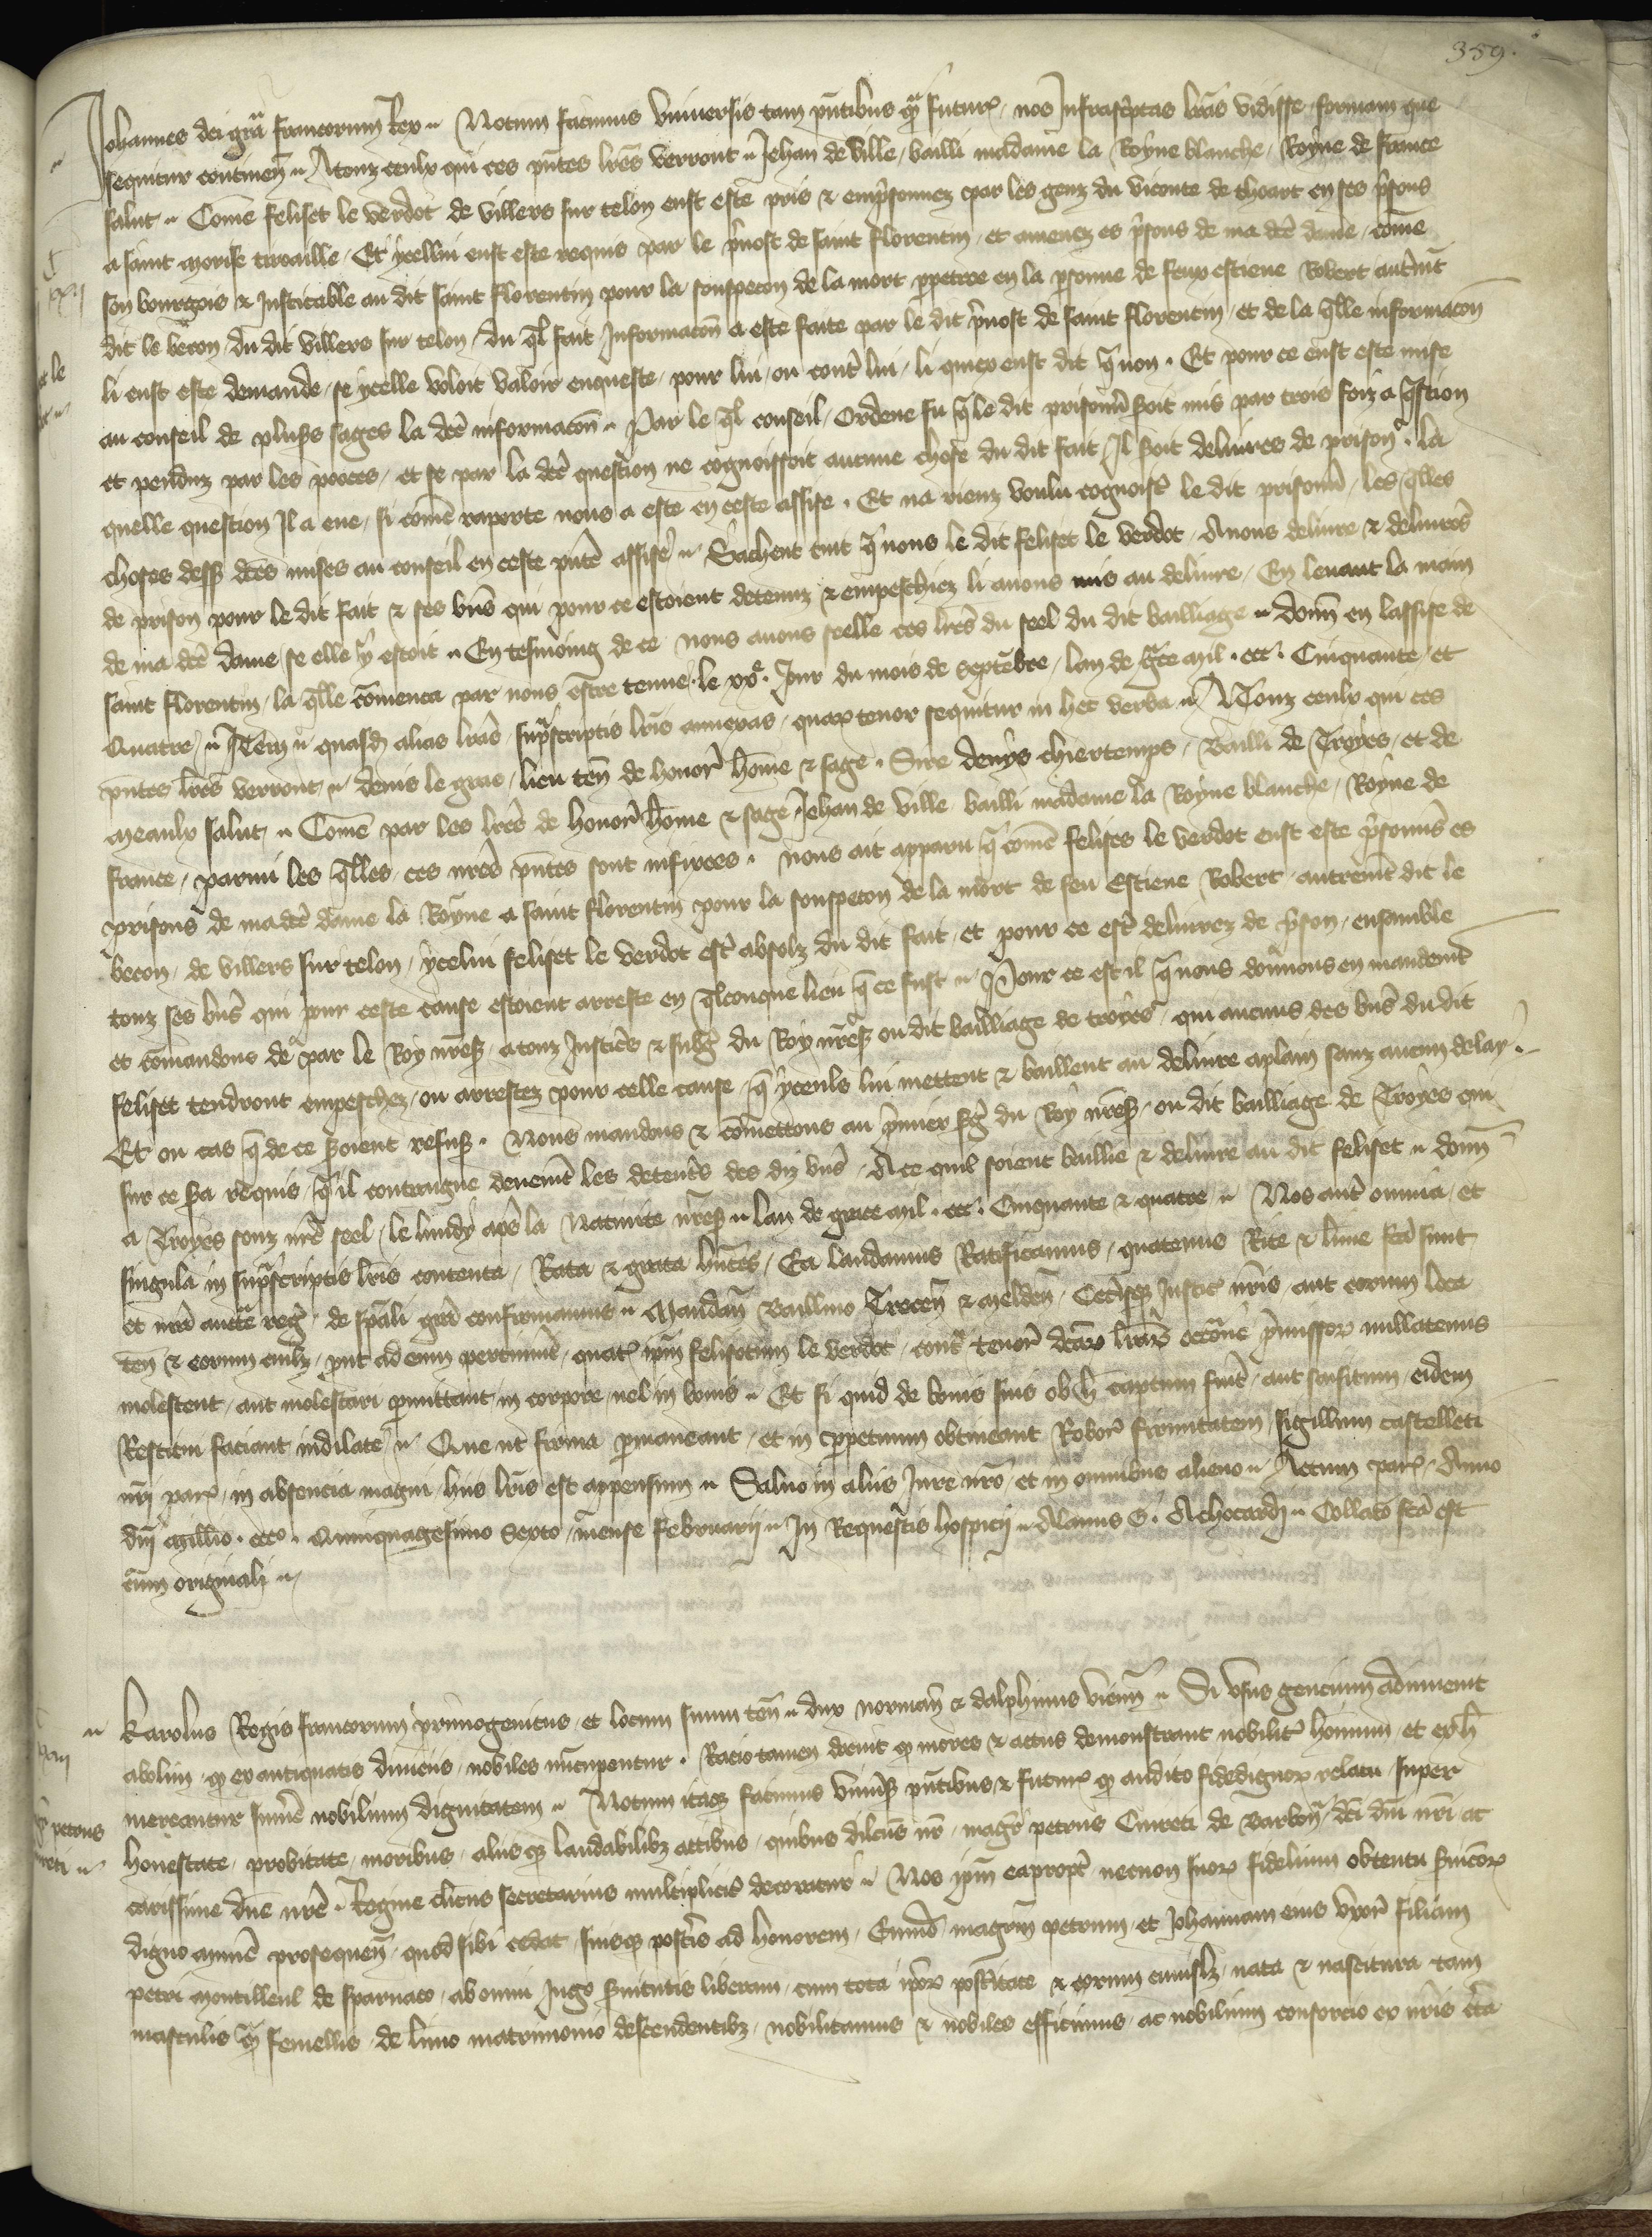 359.
Johannes dei gra francorum Rex. Notum facimus Universis tam pntibus qm futuris, nos Infrascriptas lras vidisse formam que
sequitur continen. A touz ceulx qui ces pntes lres verront. Jehan de Ville, bailli madame la Royne blanche, Royne de france
salut. Come feliset le verdot de villers sur telon eust este pris & emprisonnez par les genz du viconte de thoart en ses prisons
a saint morise tiroaille, Et ycellui eust este requis par le prevost de saint florentin, et amenez es prisons de ma dce dame, come
son bourgois & Justicable au dit saint florentin pour la souspecon de la mort perpetree en la personne de feux estiene Robert autremt
dit le becon, du dit villers sur telon, du ql fait Informacon a este faite par le dit prevost de saint florentin, et de la qlle informacon
li eust este demande, se ycelle voloit valoir enqueste, pour lui, ou contre lui, li quiex eust dit q non. Et pour ce eust este mise
au conseil de plusrs sages la dce informacon. Par le ql conseil, Ordene fu q le dit prisonnier soit mis par trois foiz a qstion
et penduz par les poces, et se par la dce question ne cognoissoit aucune chose du dit fait, Il soit delivres de prison. la
quelle question Il a eue, si come raporte nous a este en ceste assise. Et na rienz voulu cognoistre le dit prisonnier, les qlles
choses dessus dces mises au conseil en ceste pnte assise. Sachent tuit q nous le dit feliset le verdot, Avons delivre & delivrons
de prison pour le dit fait & ses biens qui pour ce estoient detenuz & empeschiez li avons mis au delivre, En levant la main
de ma dce dame, se elle y estoit. En tesmoing de ce nous avons seelle ces lres du seel du dit bailliage. donn en lassise de
saint florentin, la qlle comenca par nous estre tenue le xxe. Jour du mois de septebre, lan de grce mil. ccc. Cinquante, et
Quatre. Item quasdam alias lras suprascriptis lris annexas, quarum tenor sequitur in hec verba. A Touz ceulx qui ces
pntes lres verront. denis le gras, lieu ten de honor home & sage. Sire denys chiertemps, Bailli de Troyes, et de
meaulx salut. Come par les lres de honor home & sage Jehan de ville, bailli madame la Royne blanche, Royne de
france, parmi les qlles, ces nres pntes sont infixees. nous ait apparu q come felises le verdot eust este prisonniers es
prisons de ma dce dame la Royne a saint florentin pour la souspecon de la mort de feu Estiene Robert, autremt dit le
becon, de villers sur telon, ycelui feliset le verdot estre absolz du dit fait, et pour ce estre delivrez de prison, ensamble
touz ses biens qui pour ceste cause estoient arreste en qlconque lieu q ce fust. Pour ce est il q nous donnons en mandemt
et comandons de par le Roy nre s., a touz Justices & subgez du Roy nre s. ou dit bailliage de troyes, qui aucuns des biens du dit
feliset tendront empeschez, ou arrestez pour celle cause, q yceuls lui mettent & baillent au delivre a plain sanz aucun delay.
Et ou cas q de ce soient refusans. Nous mandons & comettons au premier sergent du Roy nre s., ou dit bailliage de Troyes qui
sur ce sera requis, q il contraigne deuemt les deteneurs des diz biens, A ce quil soient baillie & delivre au dit feliset. donn
a Troyes souz nre seel, le lundy apres la Nativite nre s. lan de grace mil. ccc. Cinquante & quatre. Nos aute omnia, et
singula in suprascriptis lris contenta, Rata & grata hntes, Ea laudamus Ratificamus, quatenus Rite & lime fca sunt
et nra aucte regia, de spali gra confirmamus. Mandan Baillivo Trecen & melden, Ceterisque Justic nris, aut eorum loca
ten & eorum cuilibet, put ad eum pertinuit, quat ipm felisetum le verdot, contra tenorem dcarum lrarum occasione premissorum nullatenus
molestent, aut molestari permittant, in corpore, vel in bonis. Et si quid de bonis suis ob hoc captum fuit, aut saisitum, eidem
Restitui faciant indilate. Que ut firma permaneant, et in perpetuum obtineant Roboris firmitatem, sigillum castelleti
nri paris, in absencia magni, hiis lris est appensum. Salvo in aliis Jure nro, et in omnibus alieno. Actum paris, Anno
dni Millio. ccco. Quinquagesimo Sexto, mense februarij. In Requestis hospicij. Alanus G. Achocardj. Collacio fca est
cum originali.
Karolus Regis francorum primogenitus, et locum suum ten. dux norman & dalphinus vienn. Si usus gencium adinvenit
abolim, q ex antiquatis divicus, nobiles nucupentur. Racio tamen docuit q mores & actus demonstrant nobilitr hominum, et ex h
mereantur sumere nobilium dignitatem. Notum itaque facimus Universis pntibus & futuris q audito fidedignorum relatu, super
honestate, probitate, moribus, aliisque laudabilibz actibus, quibus dilcus nr, magr petrus Cureti de Barbon, dci dni nri ac
carissime dne nre Regine clicus secretarius multiplicit decoratur. Nos ipm eapropt necnon suorum fidelium obtentu serviciorum
digno munere prosequen, quod sibi cedat, suisque posteris ad honorem, Eundem magrm petrum, et Johannam eius uxorem filiam
petri montilleul de sparnaco, ab omni Jugo servitutis liberam, cum tota ipsorum posteritate & eorum cuiuslz, nata & nascitura tam
masculis qm femellis, de limo matrimonio descendentibz, nobilitamus & nobiles efficimus, ac nobilium consorcio ex nris certa